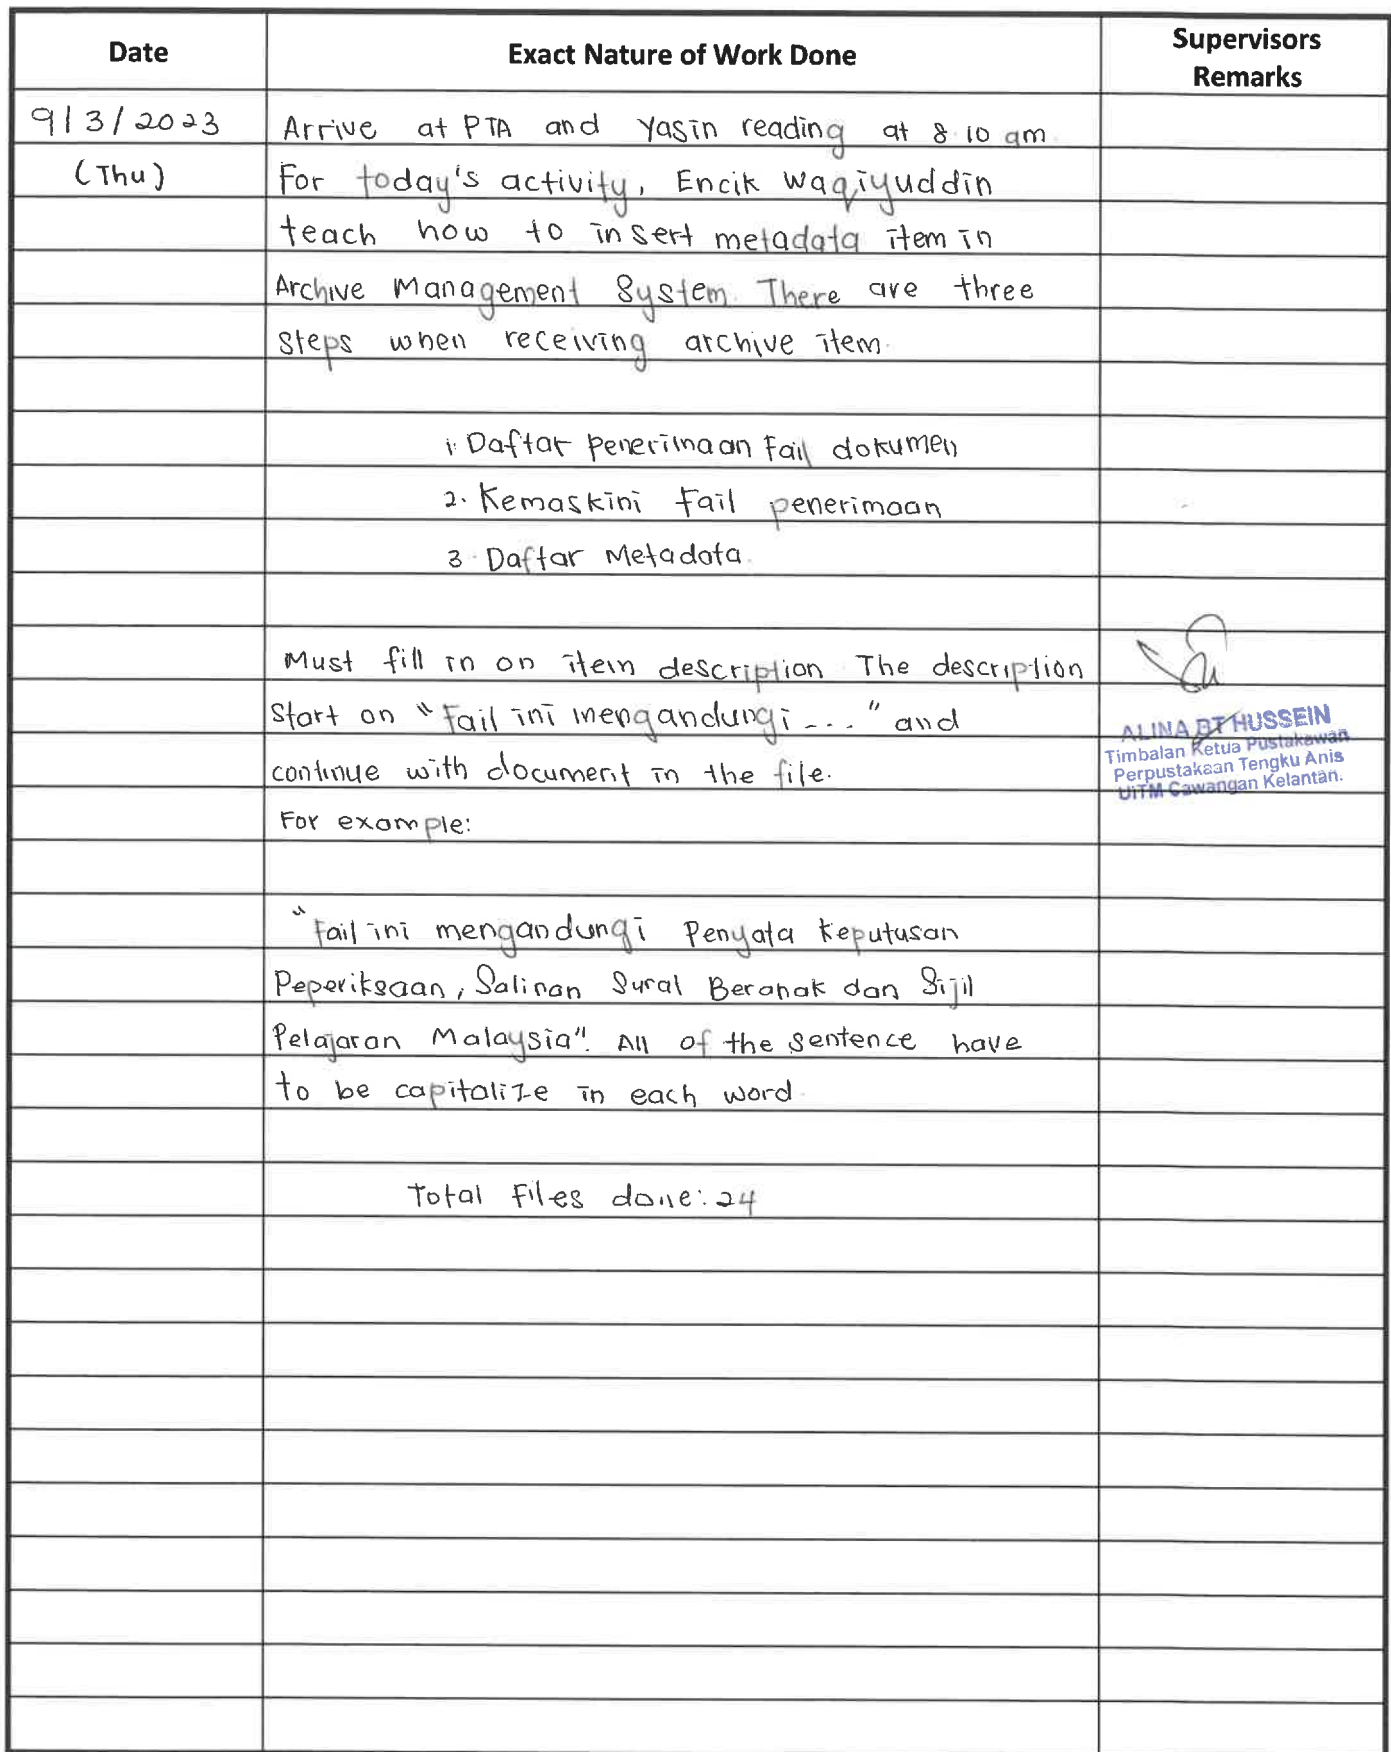 Date
Exact Nature of Work Done
Supervisors
Remarks
9/3/2023
Arrive at PTA and Yasin reading at 8.10 am.
(Thu)
For today's activity, Encik Waqiyuddin
teach how to insert metadata item in
Archive Management System. There are three
steps when receiving archive item.
1. Daftar penerimaan Fail dokumen
2. Kemaskini Fail penerimaan
3. Daftar Metadata.
Must fill in on item description. The description
start on "Fail ini mengandungi ..." and
continue with document in the file.
For example:
"Fail ini mengandungi Penyata Keputusan
Peperiksaan, Salinan Surat Beranak dan Sijil
Pelajaran Malaysia". All of the sentence have
to be capitalize in each word.
Total Files done: 24
ALINA BT HUSSEIN
Timbalan Ketua Pustakawan
Perpustakaan Tengku Anis
UiTM Cawangan Kelantan.